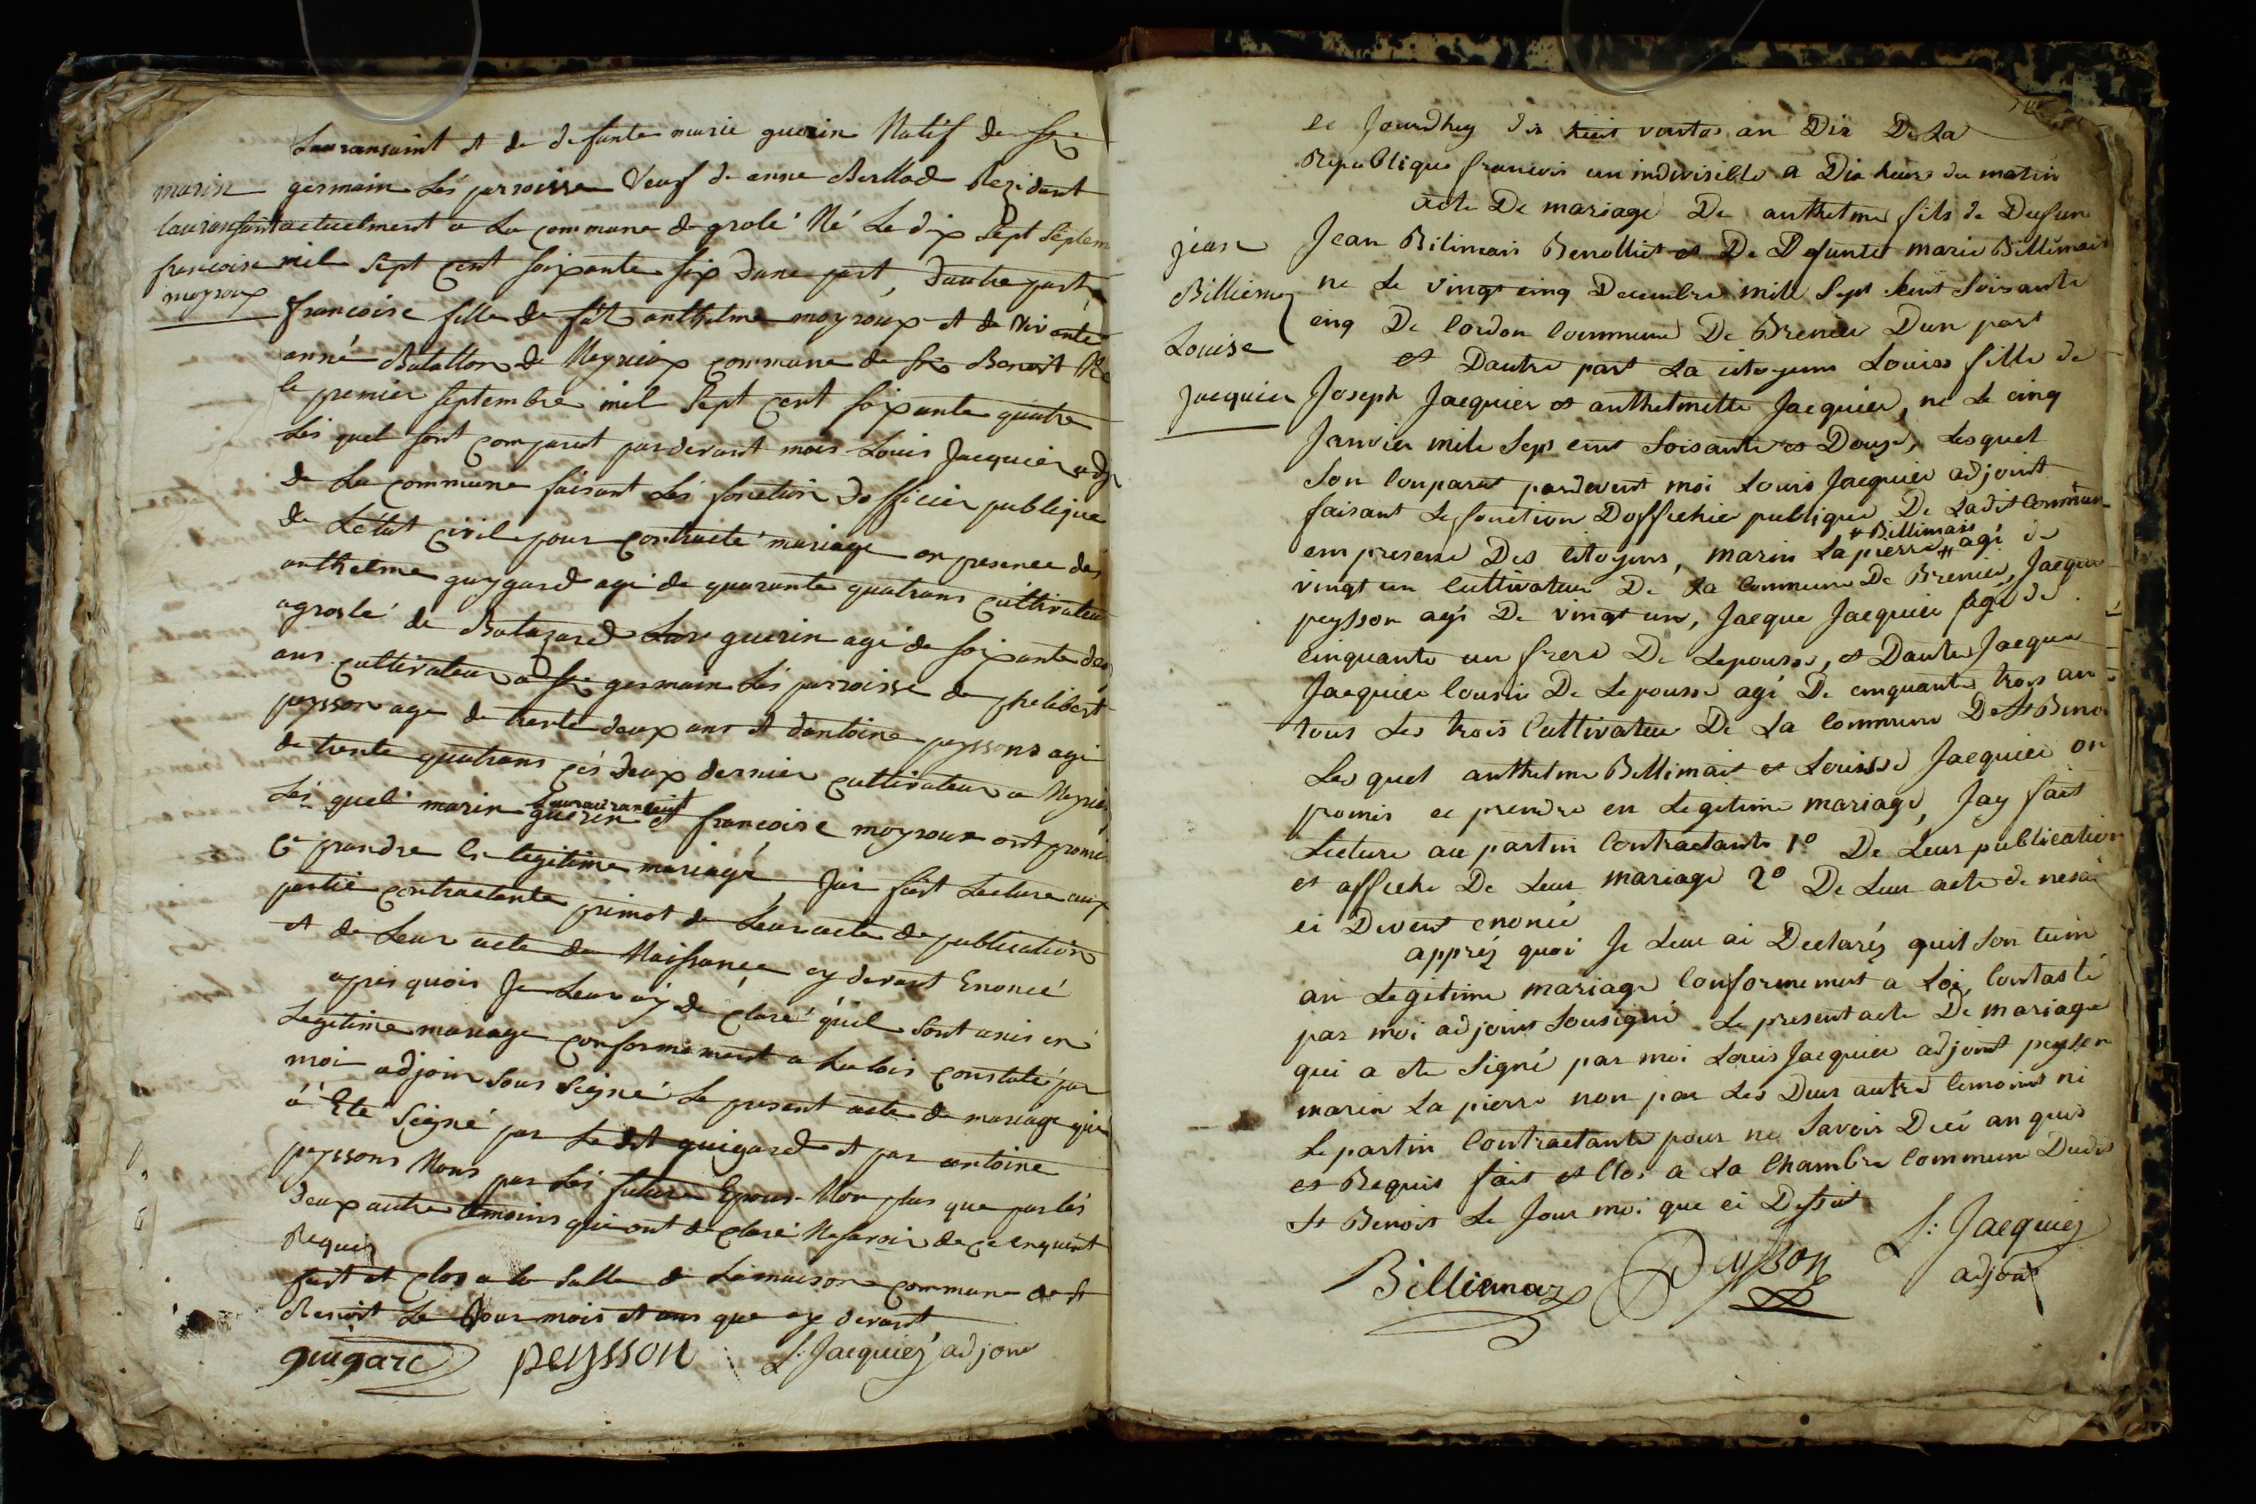 Lauransaint et de defunte marie guerin Natif de St
germain Lés parroisse Veuf de anne Berllod Rezidant
actuelment a La commune de grolé Né Le dix Sept Septem
mil Sept cent soixante six dune part, dautre part
francoise fille de fût anthelme moyroux et de vivante
anné Batallon de Meyrieux commune de St Benoit Né
le premier Septembre mil Sept cent soixante quatre
Lés quel sont comparut pardevant mois Louis Jacquier adj
de La commune faisant Lés fonction dofficier publique
de Létat civil pour contracté mariage en presence des
anthelme guygard agé de quarante quatrans cultivateur
agroslé de Balazard guerin agé de soixante deux
ans cultivateur a St germain Lés parroisse de philibert
peysson age de trente deux ans et dantoine peyssons agé
de trente quatrans cés deux dernier cultivateur a Meyrieu
Lés quel marin guerin Lauransaint et francoise moyroux ont promi
ce prandre en legitime mariage, Jai fait Lecture aux
partie contractante primot de Leur acte de publication
et de Leur acte de Naissance cy devant Enoncé
apres quois Je Leur ay dé claré quil sont unis en
Legitime mariage conformement a La lois constaté par
moi adjoin sous Seigné Le present acte de mariage qui
a Eté Seigné par Le dit guigard et par antoine
peyssons Nons par Lés future Epoux Non plus que par lés
deux autre temoins qui ont de claré Ne savoir de ce enquert
Requis
fait et clos a la Salle de Lamaison commune de St
Benoit Le Jour mois et ans que cy devant
guigard peysson L: Jacquiez adjoin
marin
lauransaint
francoise
moyroux
ce Jourdhuy dix huit ventos an Dix De La
Republique francois un indivisible a Dix heure du matin
acte De mariage De anthelme fils de Defun
Jean Bilimais Benolliet et De Defunte marie Billimais
ne Le vingt cinq Decembre mill Sept Cent Soisante
cinq De Cordon Commune De Brenier Dun part
et Dautre part La citoyene Louise fille de
Joseph Jacquier et anthelmette Jacquier, ne Le cinq
Janvier mile Sept cent Soisante et Douze, Lesquel
Son Comparut pardevent moi Louis Jacquier adjoint
faisant Le fonction Doffichier publique De Ladit Commun
em presence Des Citoyens, marin Lapierre # agé de
# Billimais
vingt un Cultivateur De La Commune De Brenier, Jacque
peysson agé De vingt un, Jacque Jacquier agé de
cinquante un frere De Lepouse, et Dautre Jacque
Jacquier Cousin De Lepouse agé De cinquante trois an
tous Les trois Cultivateur De La Commune De St Benoi
Les quel anthelme Billimais et Louisse Jacquier on
promis ce prendre en Legitime mariage, Jay fait
Lecture au partin Contractante 1º De Leur publication
et affiche De Leur mariage 2º De Leur acte de nesa
ci Devent enoncé
apprés quoi Je Leur ai Declaréz quil Son
an Legitime mariage Conformement a Loi, Contasté
par moi adjoint Sousigné Le present acte De mariage
qui a ete Signé par moi Louis Jacquier adjoint peyson
marin La pierre non par Les Deux autre temoint ni
Le partin Contractante pour ne Savoir Deci an quis
et Requis fait et Clos a La Chambre Commun Dudit
St Benoit Le Jour moi que ci Desut
Billiemaz Peysson L: Jacquiez
adjoint
jean
Billiemaz
Louise
Jacquier